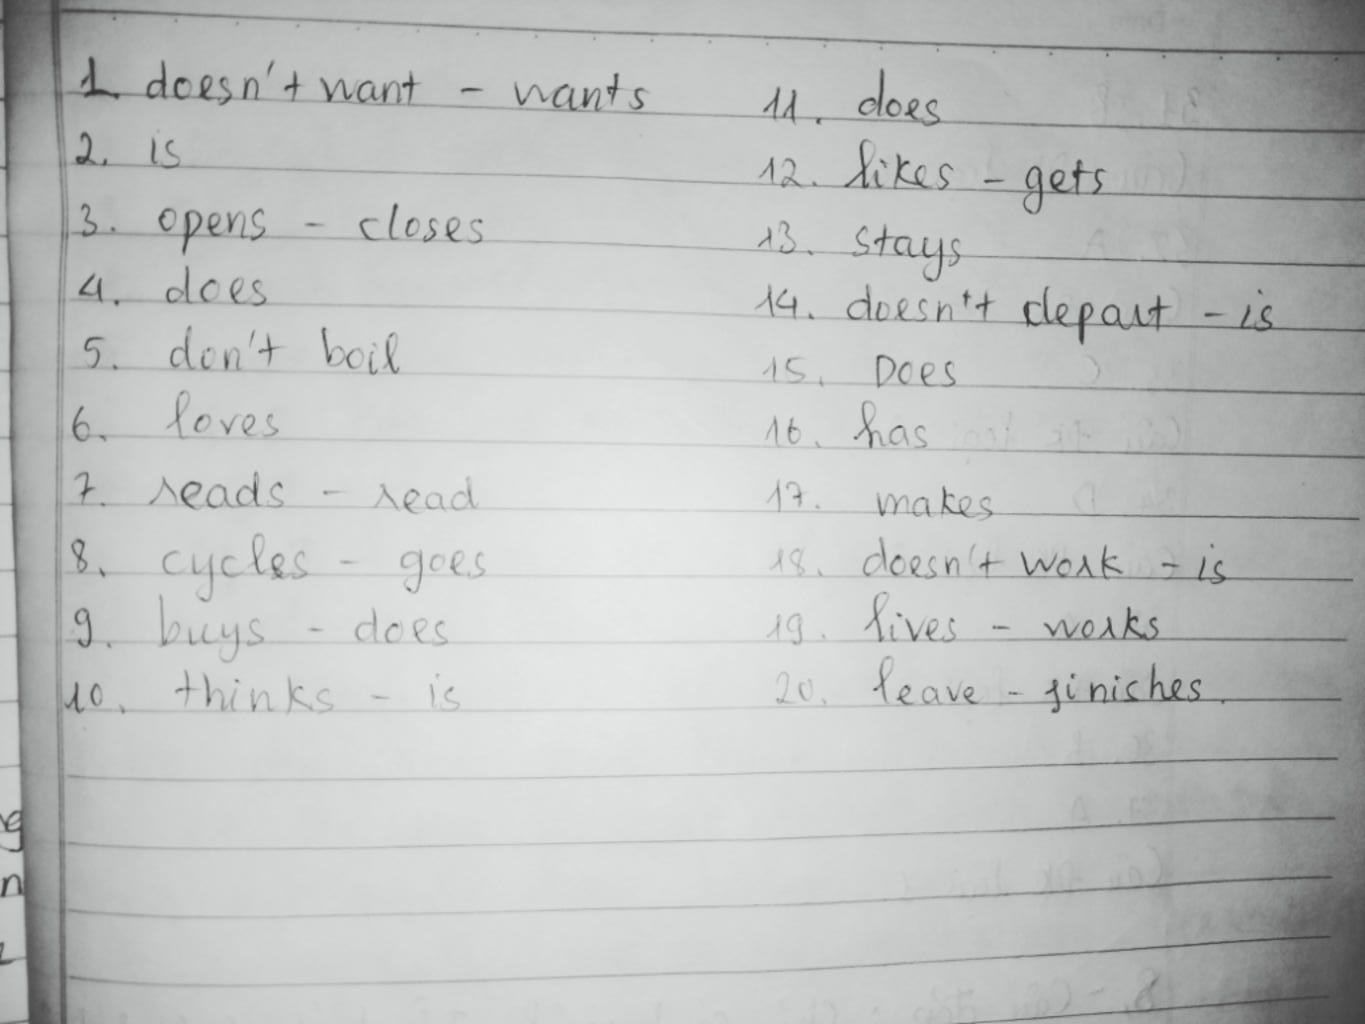 1. doesn't want - wants
2. is
3. opens - closes
4. does
5. don't boil
6. loves
7. reads - read
8. cycles - goes
9. buys - does
10. thinks - is
11. does
12. likes - gets
13. stays
14. doesn't depart - is
15. Does
16. has
17. makes
18. doesn't work - is
19. lives - works
20. leave - finiches.